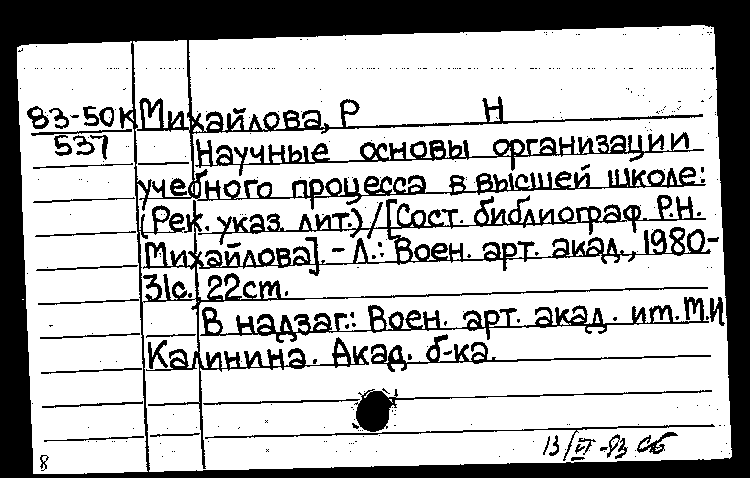 83-50К Михайлова, Р Н
537 Научные основы организации
учебного процесса в высшей школе:
(Рек. указ. лит.)/[Сост. библиограф Р.Н.
Михайлова]. - Л.: Воен. арт. акад., 1980.-
31с.; 22cm.
В надзаг.: Воен. арт. акад. им. М.И
Калинина. Акад. б-ка.
13/VI-83 Сб
8